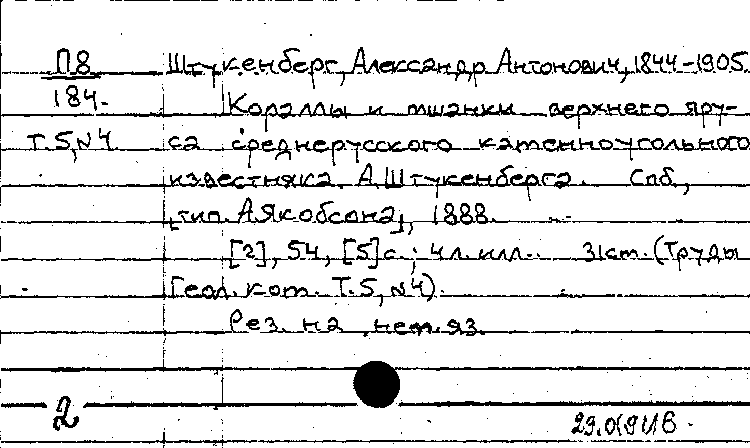 П8 Штукенберг, Александр Антонович, 1844-1905.
184. Кораллы и мшанки верхнего яру-
Т.5, №4 са среднерусского каменноугольного
известняка. А.Штукенберга. Спб.,
[тип. А.Якобсона], 1888.
[2], 54, [5]с.; 4л. илл. 31см. (Труды
Геол. ком. Т.5, №4).
Рез. на нем. яз.
2